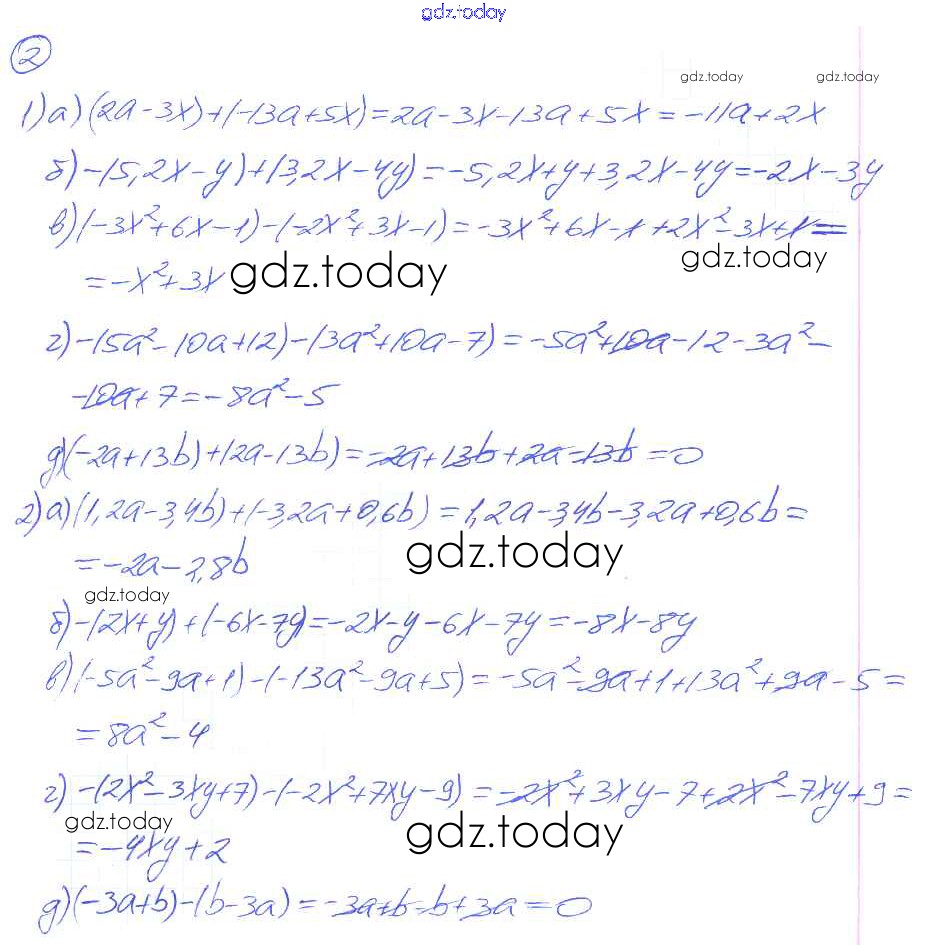 gdz.today
2
gdz.today gdz.today
1) а) (2a-3x)+(-13a+5x)=2a-3x-13a+5x=-11a+2x
б) -(5,2x-y)+(3,2x-4y)=-5,2x+y+3,2x-4y=-2x-3y
в) (-3x²+6x-1)-(-2x²+3x-1)=-3x²+6x-1+2x²-3x+1=
=-x²+3x gdz.today gdz.today
г) -(5a²-10a+12)-(3a²+10a-7)=-5a²+10a-12-3a²-
-10a+7=-8a²-5
д) (-2a+13b)+(2a-13b)=-2a+13b+2a-13b=0
2) а) (1,2a-3,4b)+(-3,2a+0,6b)=1,2a-3,4b-3,2a+0,6b=
=-2a-2,8b gdz.today
gdz.today
б) -(2x+y)+(-6x-7y)=-2x-y-6x-7y=-8x-8y
в) (-5a²-9a+1)-(-13a²-9a+5)=-5a²-9a+1+13a²+9a-5=
=8a²-4
г) -(2x²-3xy+7)-(-2x²+7xy-9)=-2x²+3xy-7+2x²-7xy+9=
gdz.today gdz.today
=-4xy+2
д) (-3a+b)-(b-3a)=-3a+b-b+3a=0